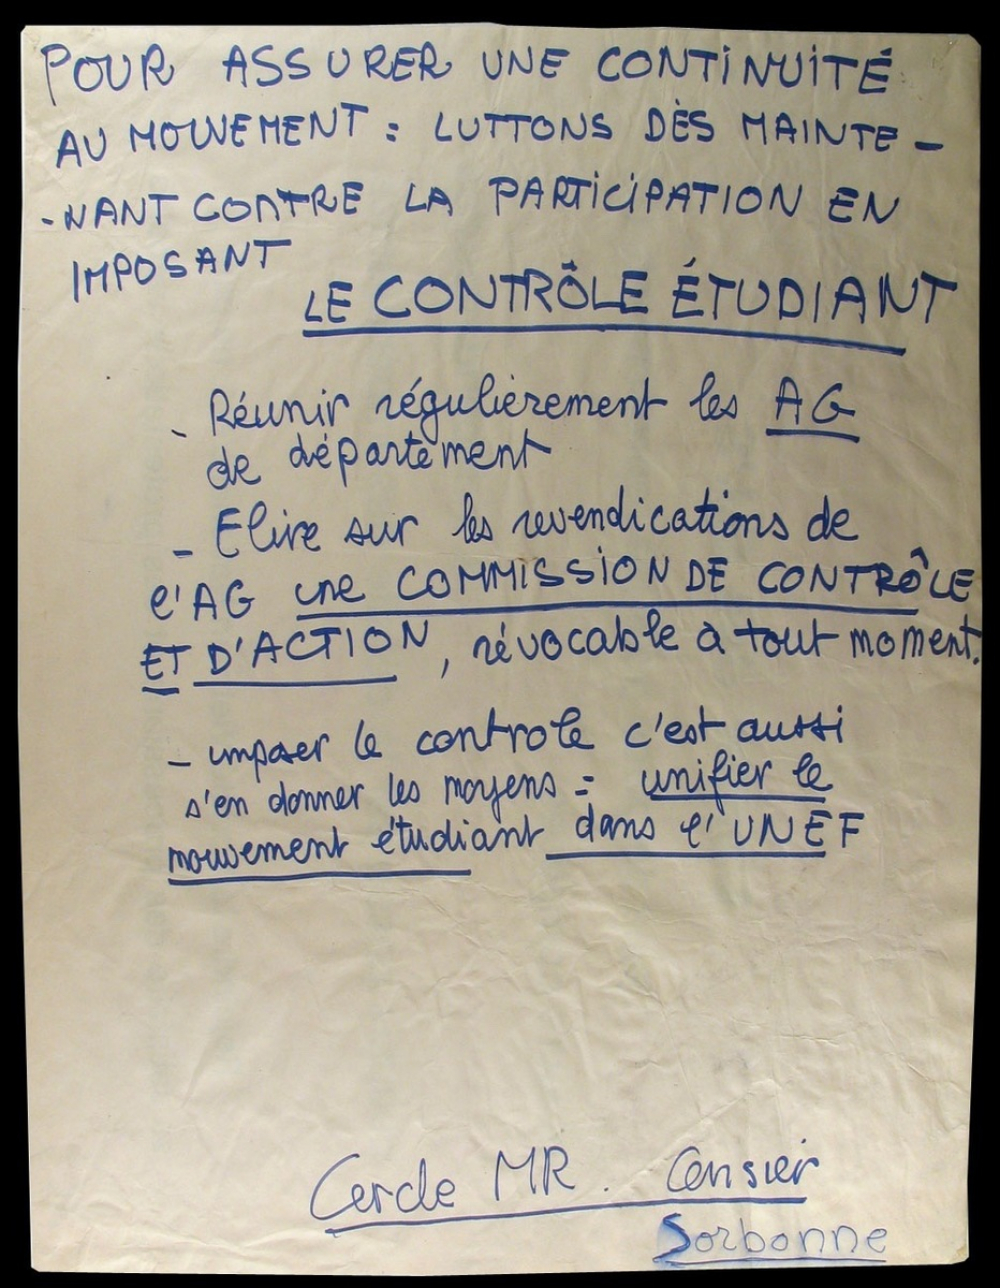 POUR ASSURER UNE CONTINUITÉ
AU MOUVEMENT : LUTTONS DÈS MAINTE -
- NANT CONTRE LA PARTICIPATION EN
IMPOSANT
LE CONTRÔLE ÉTUDIANT
- Réunir régulièrement les AG
de département
- Elire sur les revendications de
l'AG une COMMISSION DE CONTRÔLE
ET D'ACTION, révocable a tout moment.
- imposer le controle c'est aussi
s'en donner les moyens = unifier le
mouvement étudiant dans l'UNEF
Cercle MR. Censier
Sorbonne